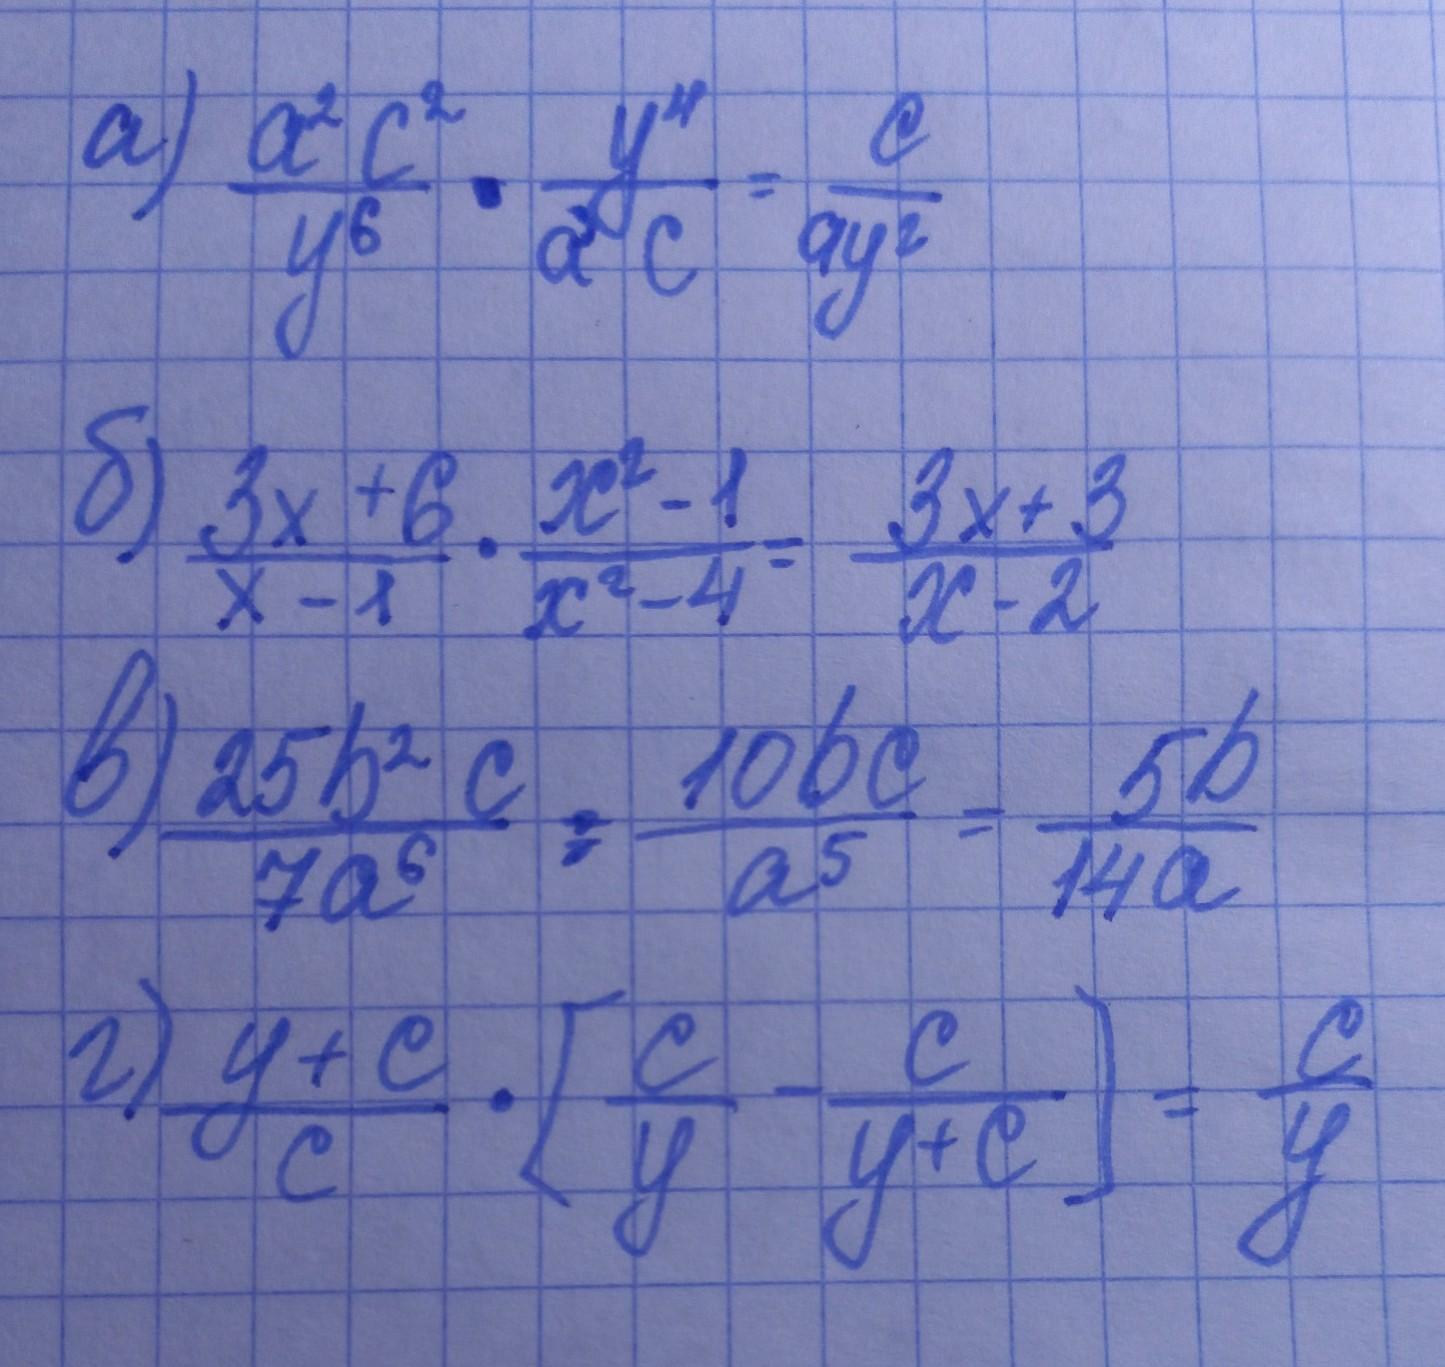 а) a²c²/y⁶ · y⁴/a³c = c/ay²
б) 3x+6/x-1 · x²-1/x²-4 = 3x+3/x-2
в) 25b²c/7a⁶ : 10bc/a⁵ = 5b/14a
г) y+c/c · [c/y - c/y+c] = c/y